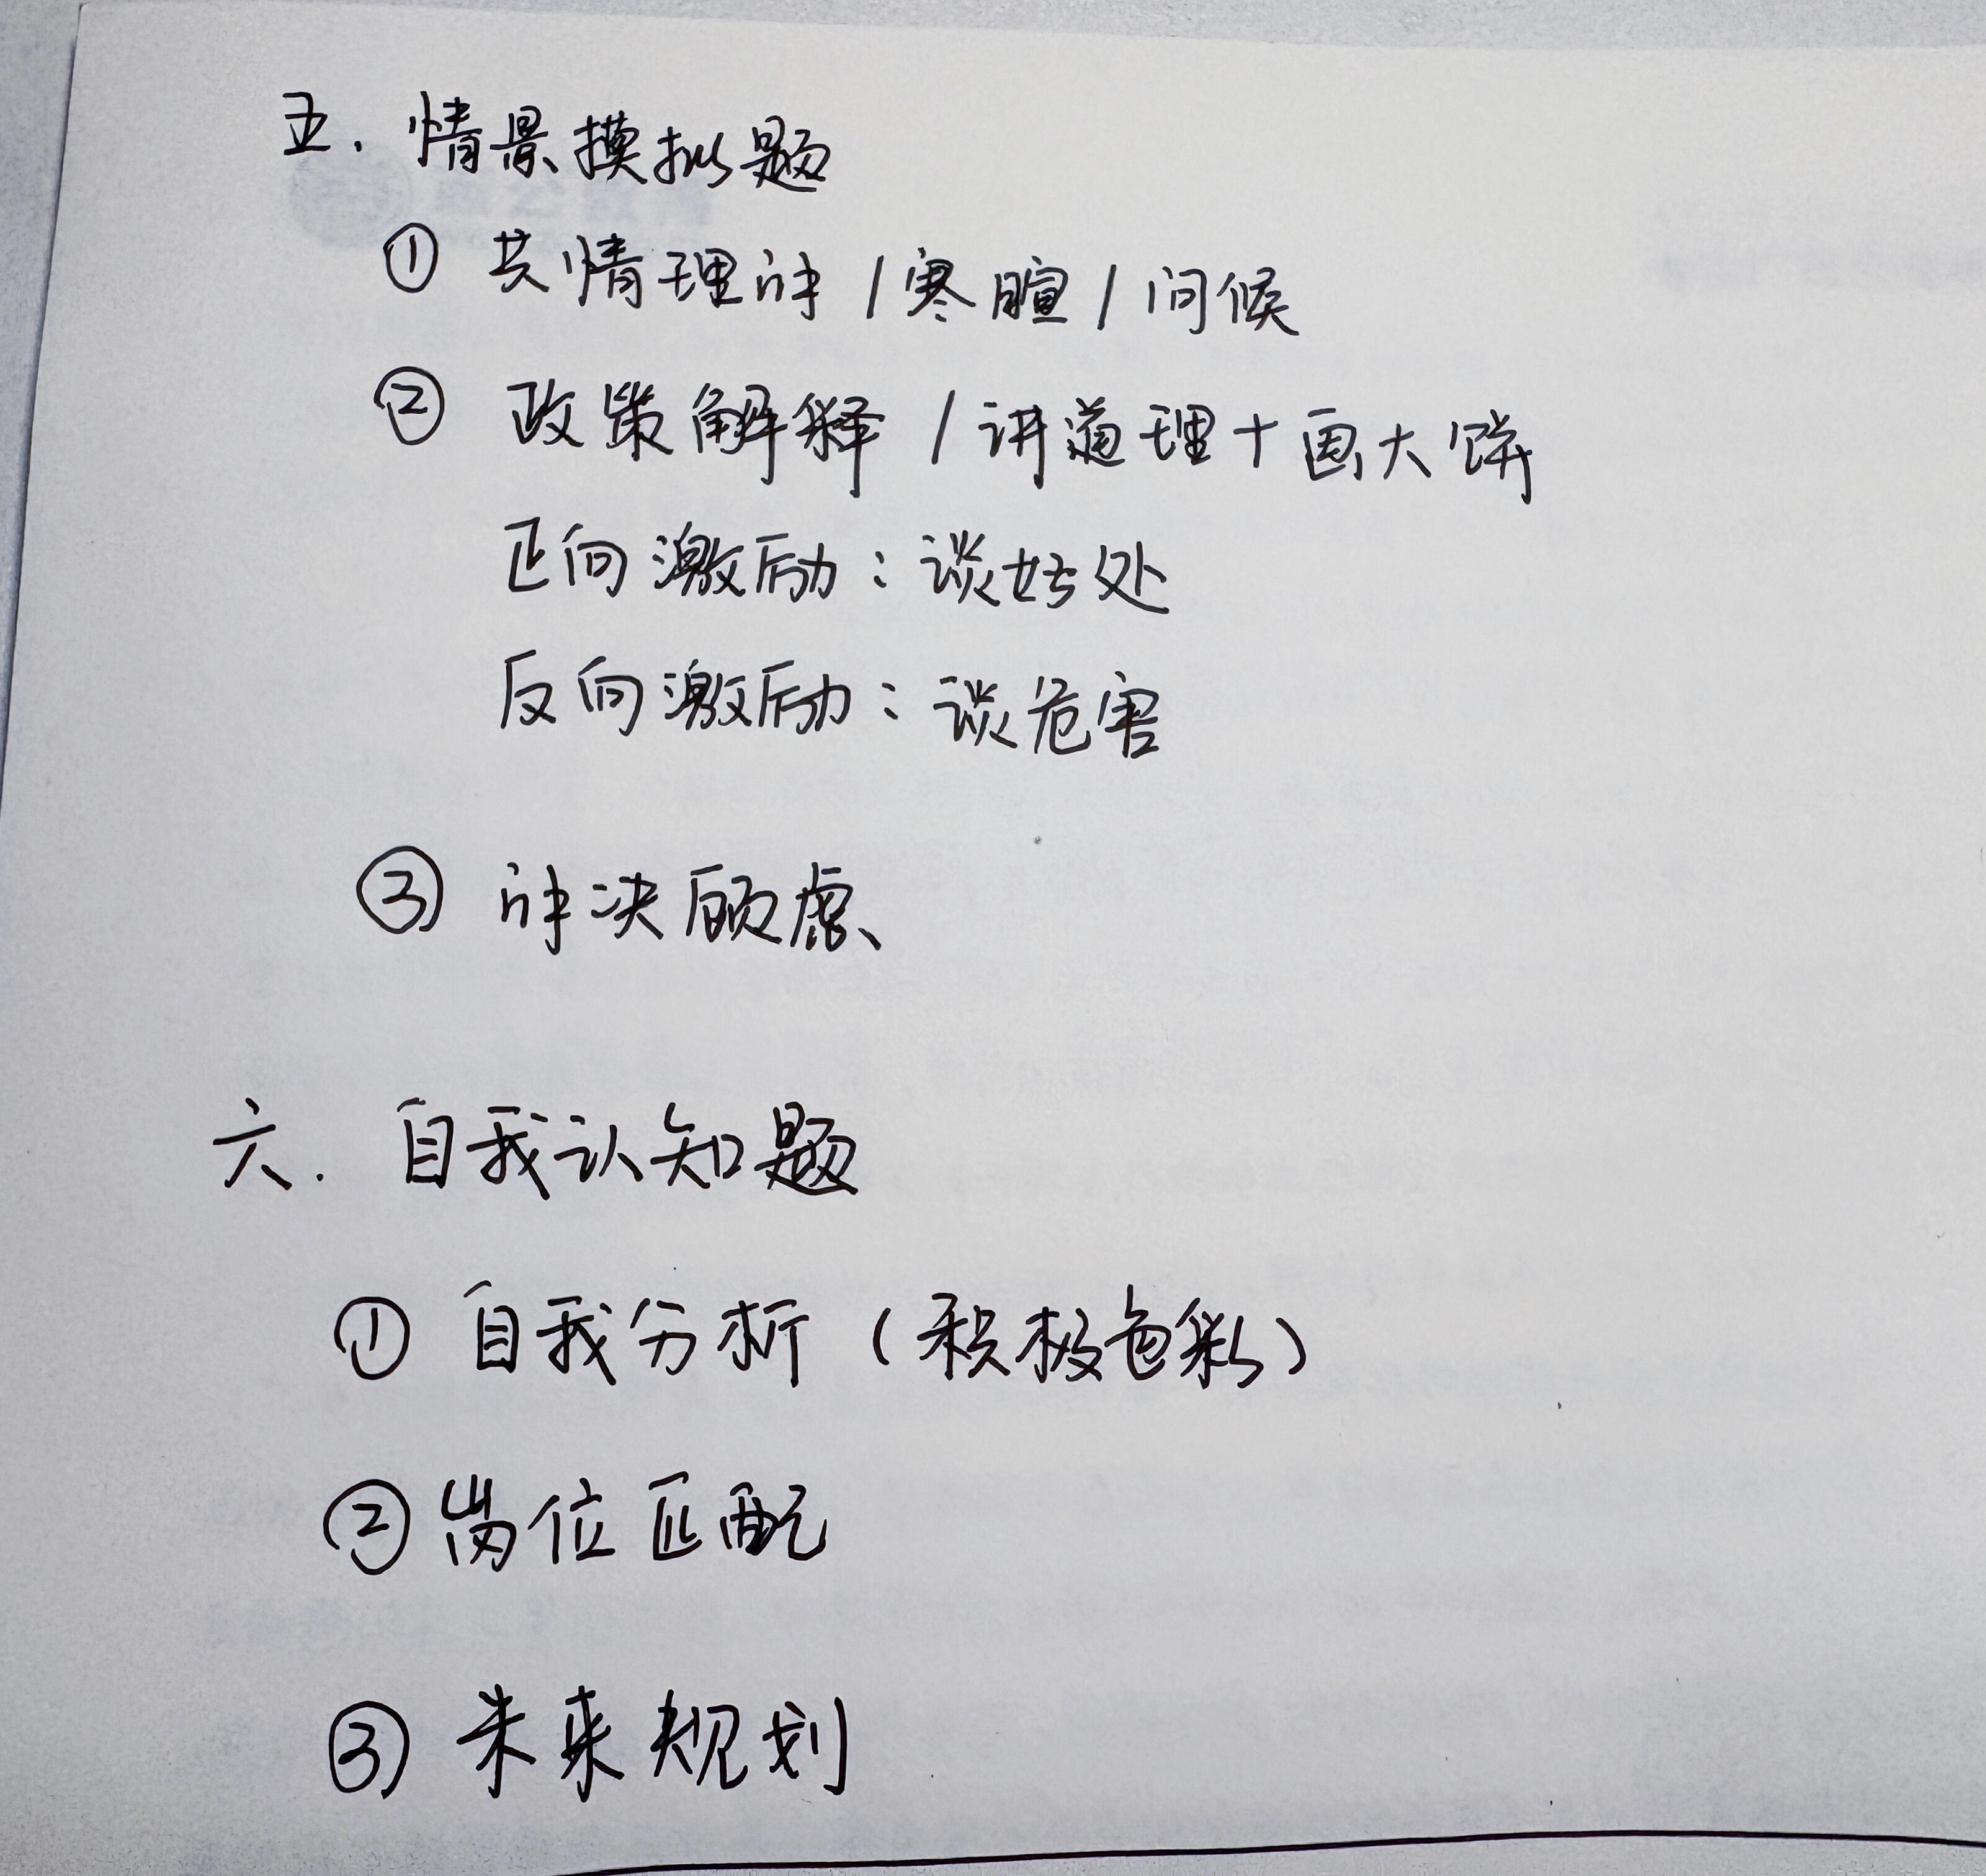 五. 情景摸拟题
① 共情理解 / 寒暄 / 问候
② 政策解释 / 讲道理 + 画大饼
正向激励：谈好处
反向激励：谈危害
③ 解决顾虑
六. 自我认知题
① 自我分析（积极色彩）
② 岗位匹配
③ 未来规划